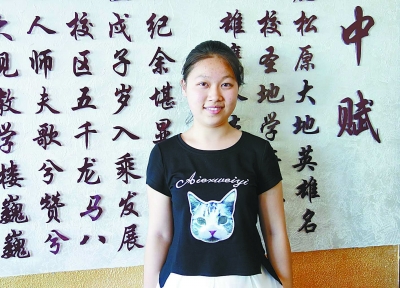 中赋
松原大地英雄名
校圣地学
雄
纪余堪
戊子岁入乘发展
校区五千龙马八
人师夫歌兮赞兮
见教学楼巍巍
Aierweiyi